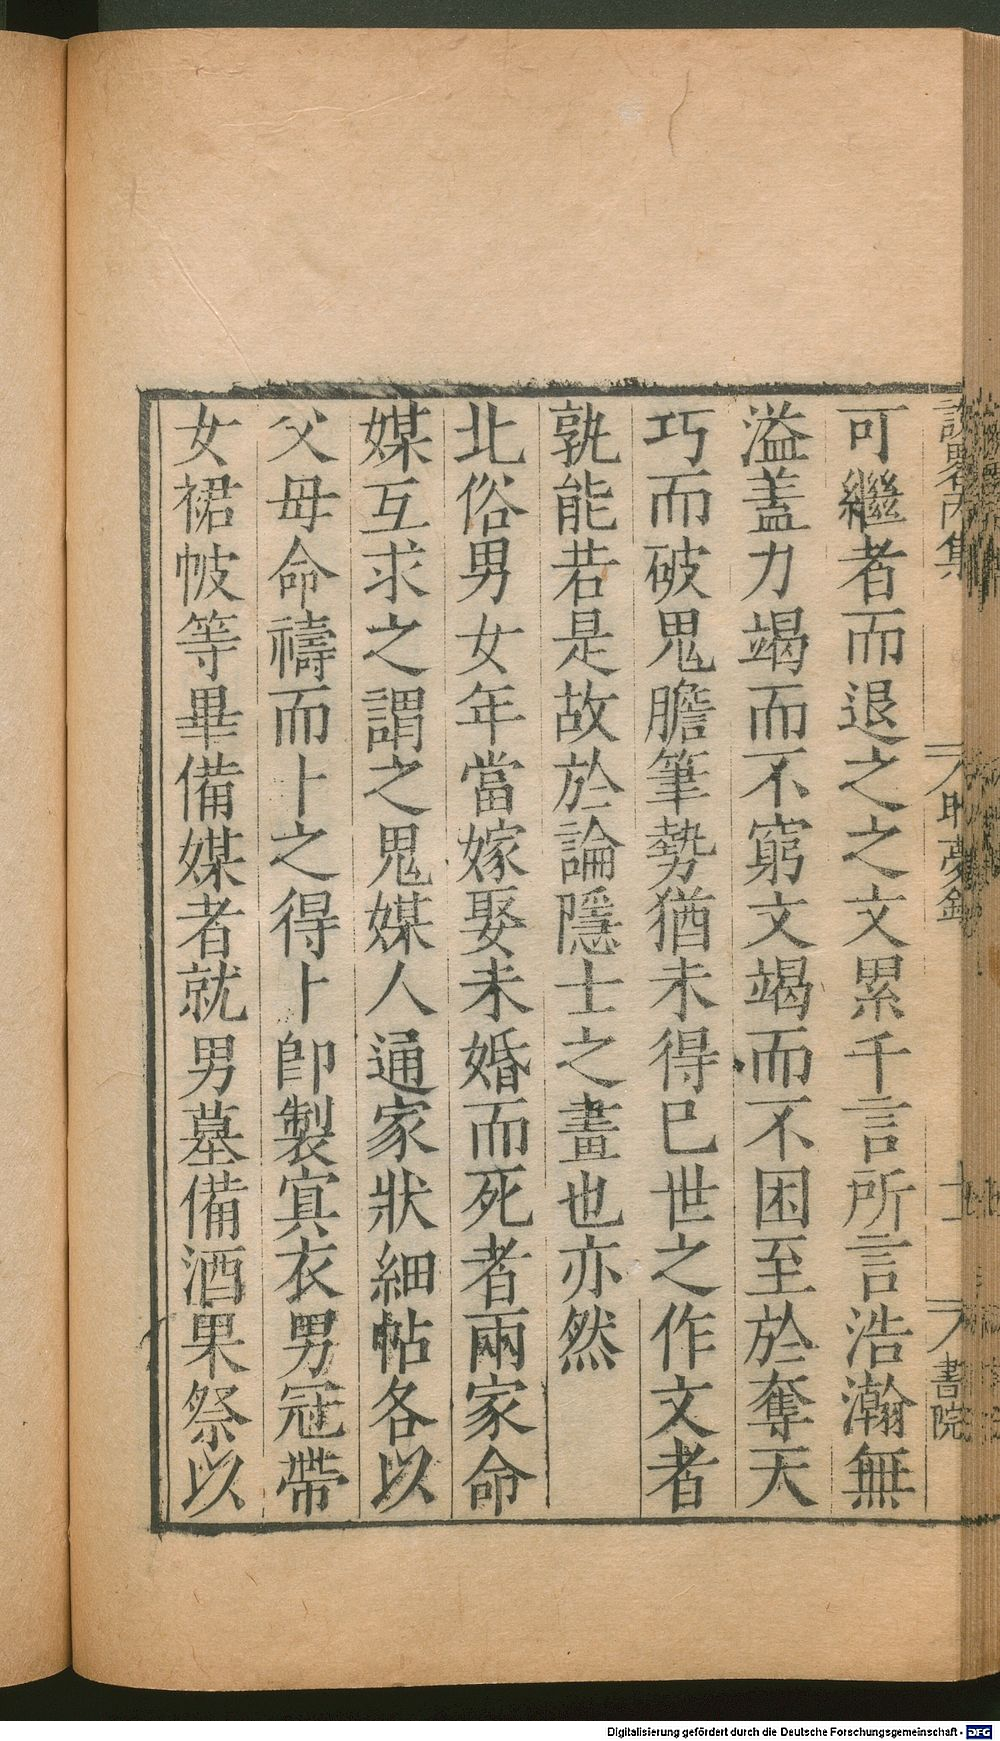 可繼者而退之之文累千言所言浩瀚無
溢蓋力竭而不窮文竭而不困至於奪天
巧而破鬼膽筆勢猶未得已世之作文者
孰能若是故於論隱士之畫也亦然
北俗男女年當嫁娶未婚而死者兩家命
媒互求之謂之鬼媒人通家狀細帖各以
父母命禱而卜之得卜即製冥衣男冠帶
女裙帔等畢備媒者就男墓備酒果祭以
書院
Digitalisierung gefördert durch die Deutsche Forschungsgemeinschaft - DFG